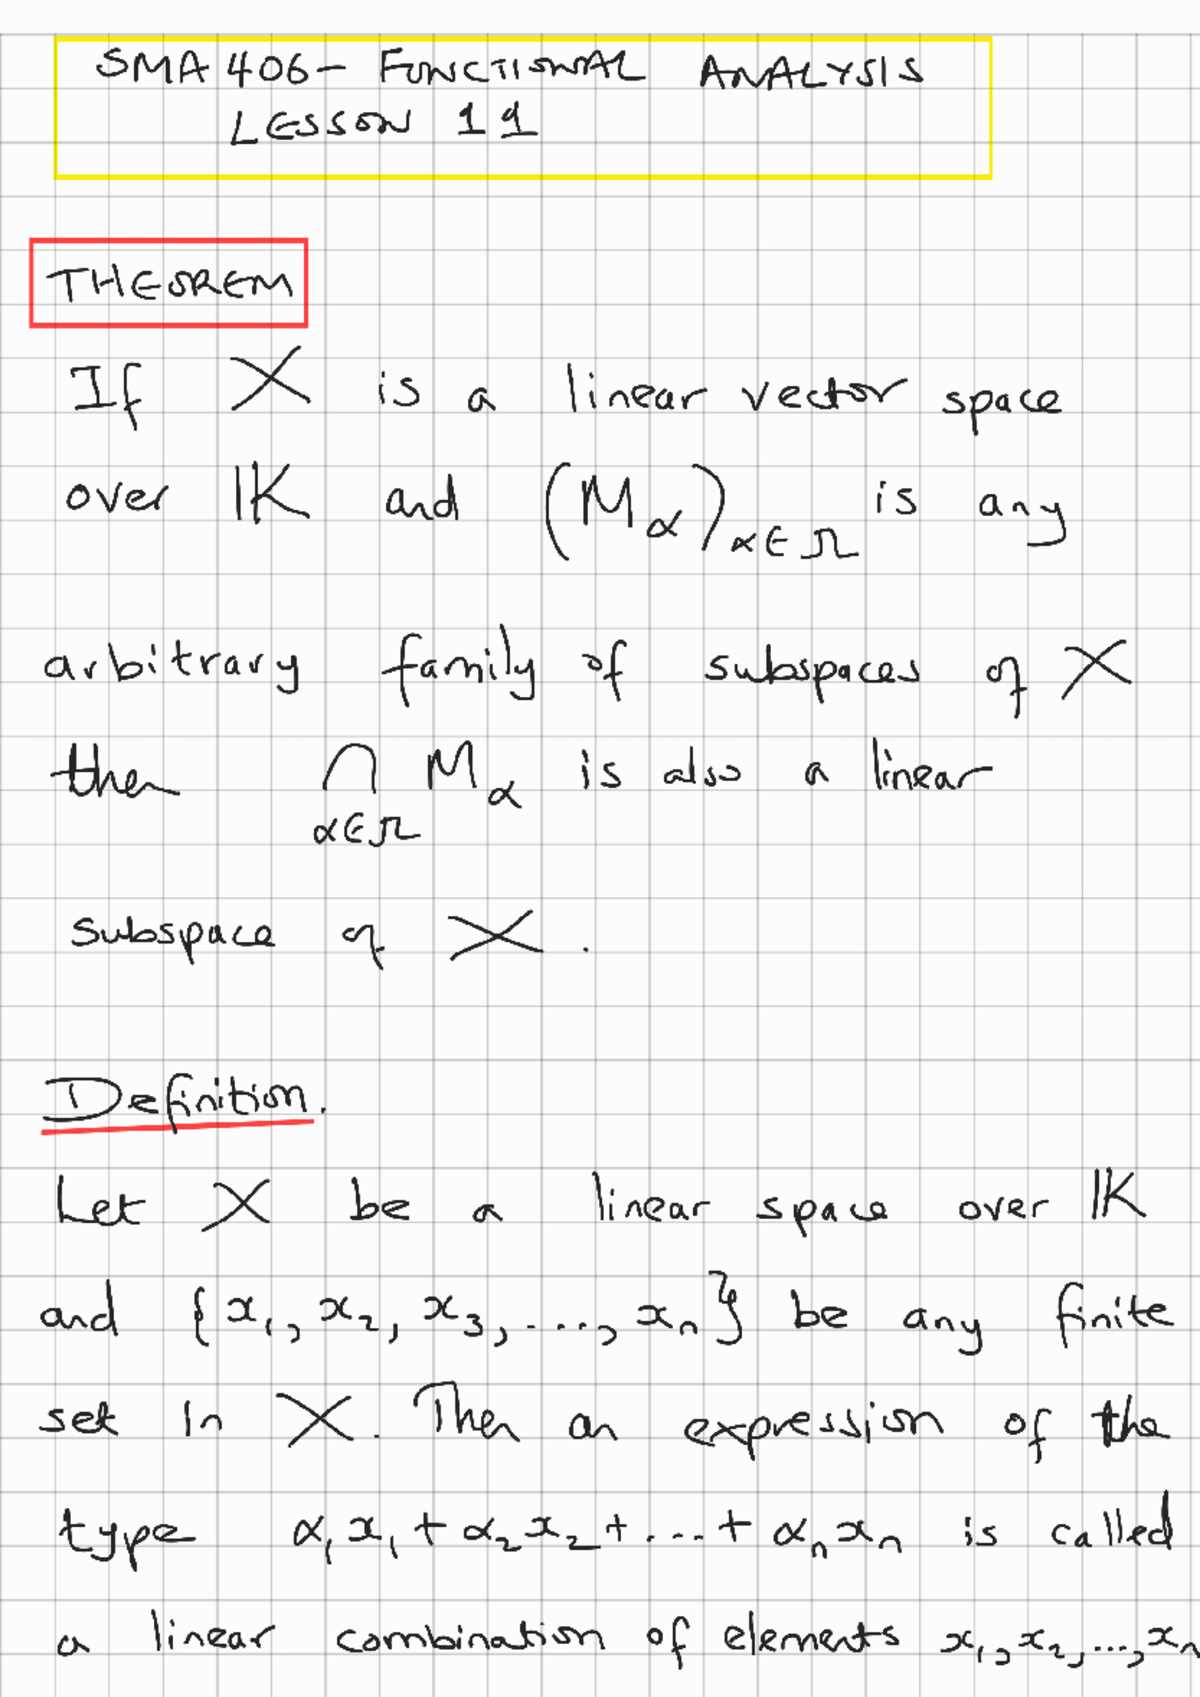 SMA 406 - FUNCTIONAL ANALYSIS
LESSON 11
THEOREM
If X is a linear vector space
over IK and (M_α)_{α∈Ω} is any
arbitrary family of subspaces of X
then ∩_{α∈Ω} M_α is also a linear
subspace of X.
Definition.
Let X be a linear space over IK
and {x₁, x₂, x₃, ..., xₙ} be any finite
set in X. Then an expression of the
type α₁x₁ + α₂x₂ + ... + αₙxₙ is called
a linear combination of elements x₁, x₂, ..., xₙ